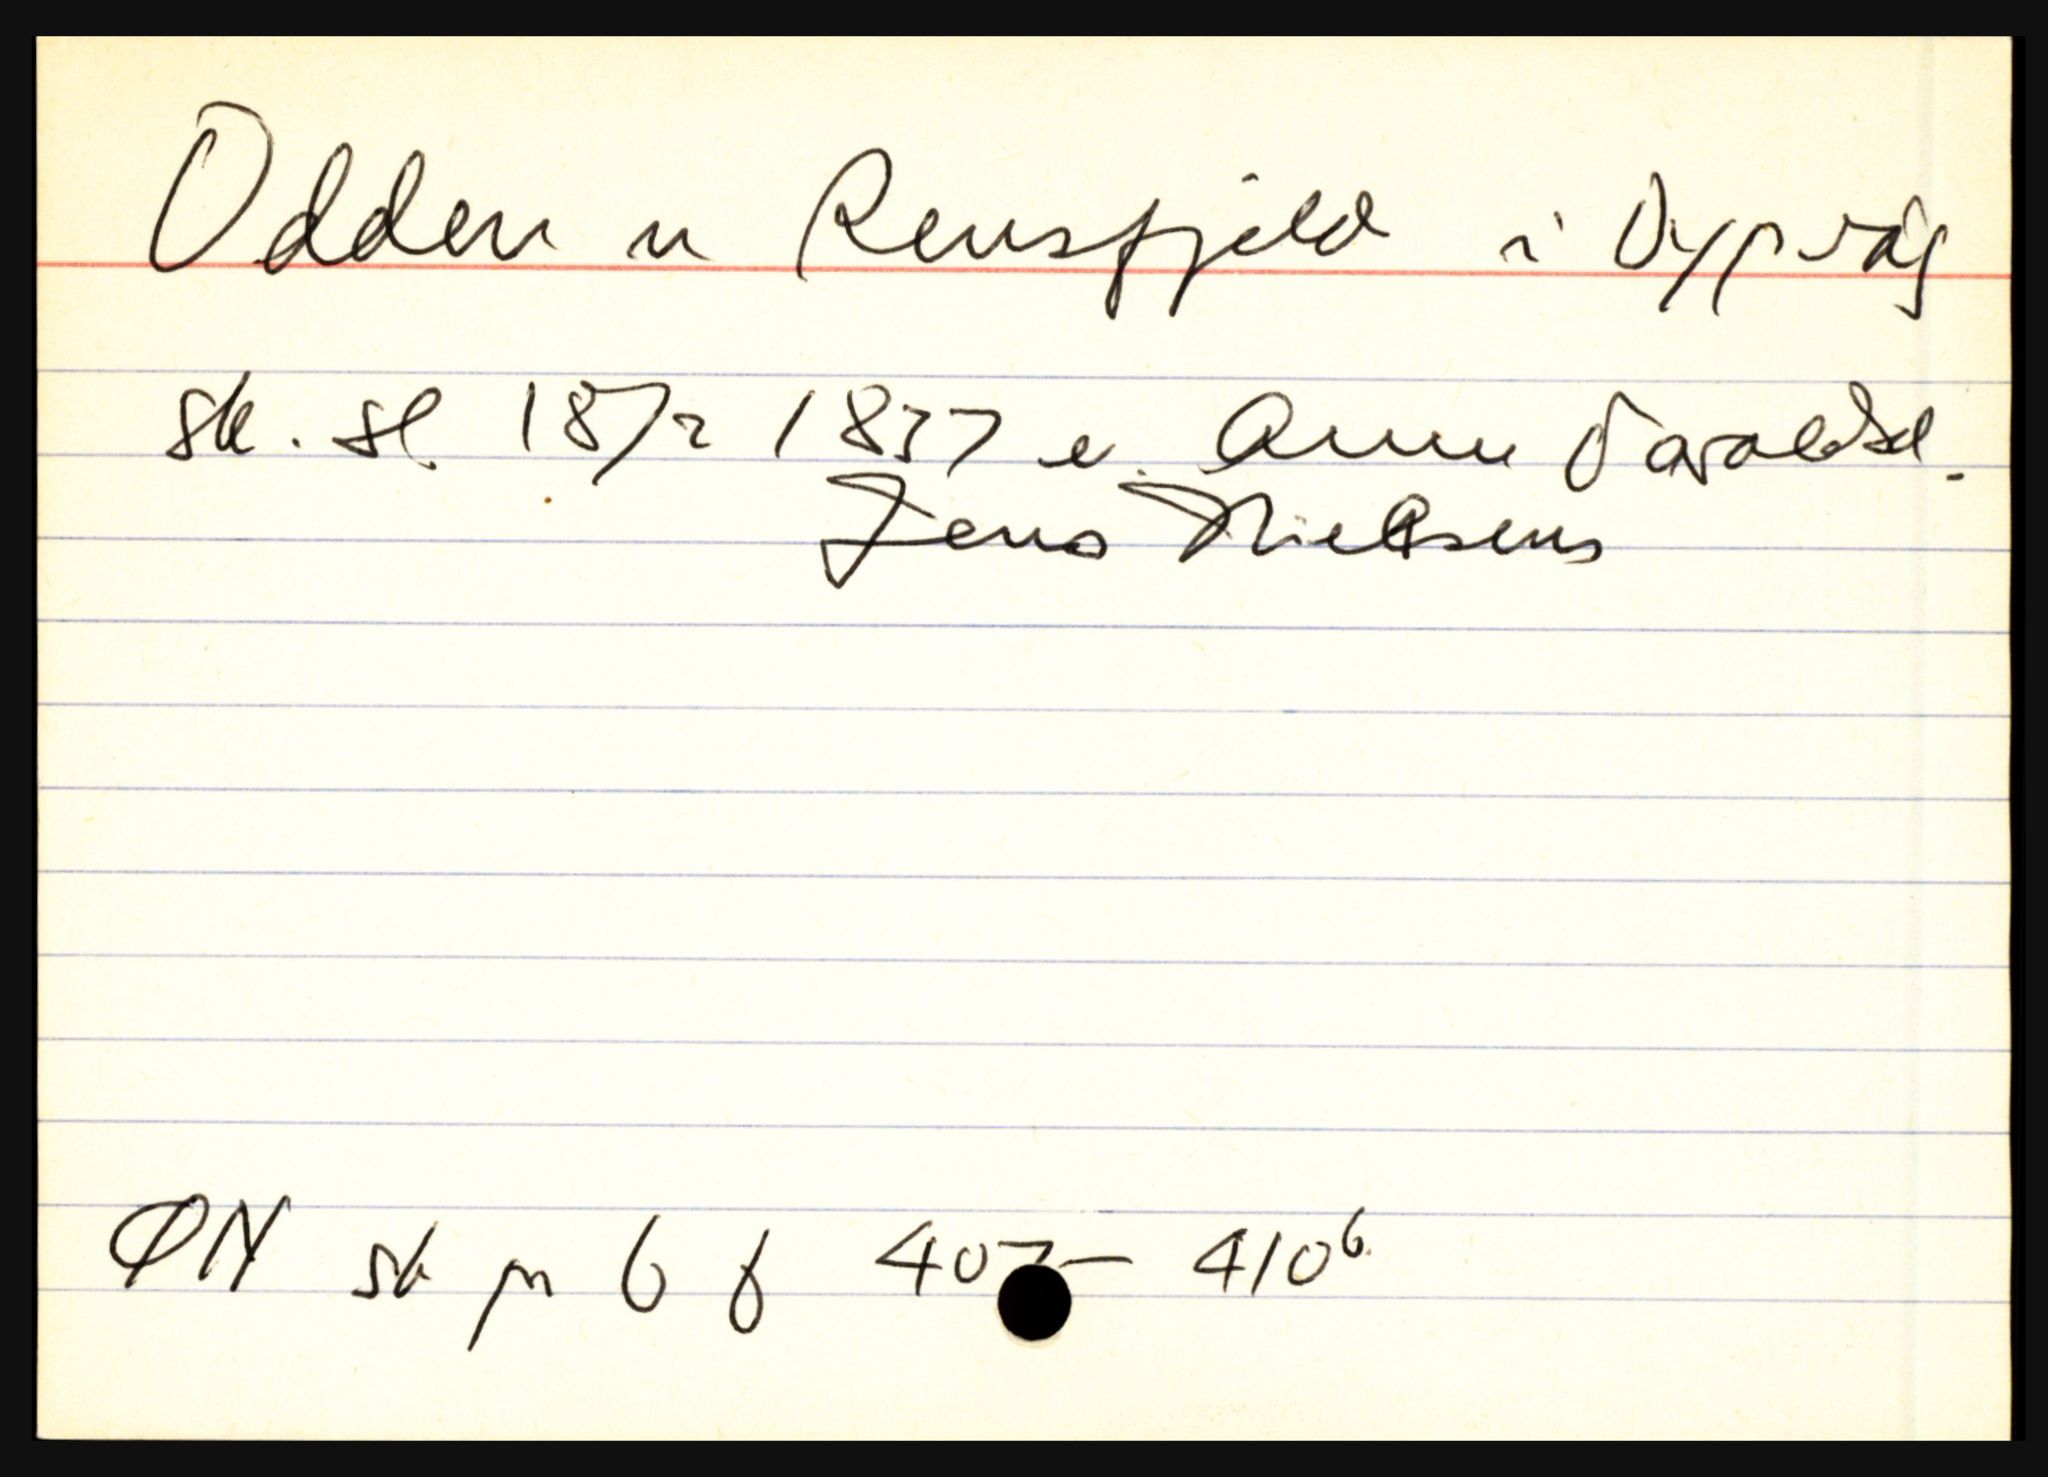 Odden u Rensfjeld i Dypvåg
sk. sl 18/2 1837 e. Anne Taraldsd.
Jens Nielsens
ØN sk pr 6 f 407 – 410b